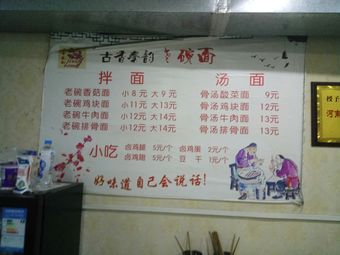 古香秦韵老碗面
拌面 汤面
老碗香菇面 小8元 大9元 骨汤酸菜面 9元
老碗鸡块面 小11元 大13元 骨汤鸡块面 13元
老碗牛肉面 小12元 大14元 骨汤牛肉面 13元
老碗排骨面 小12元 大14元 骨汤排骨面 13元
小吃 卤鸡腿 5元/个 卤鸡蛋 2元/个
卤鸡翅 5元/个 豆干 1元/个
好味道自己会说话!
授予
河南